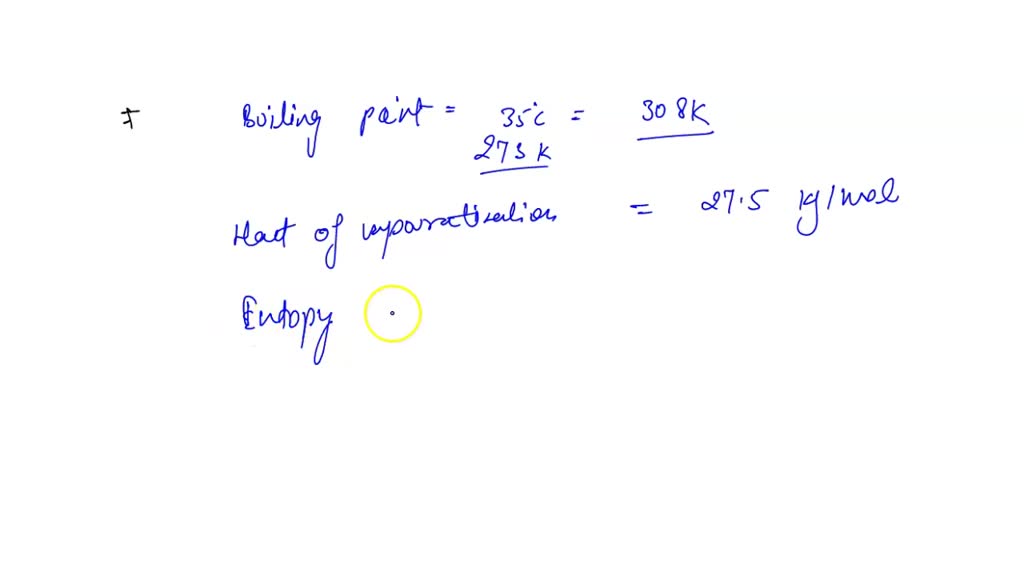 Boiling point = 35°C = 308K
273 K
Heat of vaporatisation = 27.5 kJ/mol
Entopy